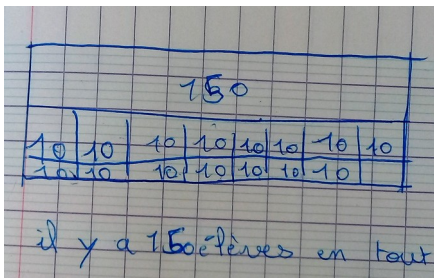 150
10 10 10 10 10 10 10 10
10 10 10 10 10 10 10
il y a 150 élèves en tout